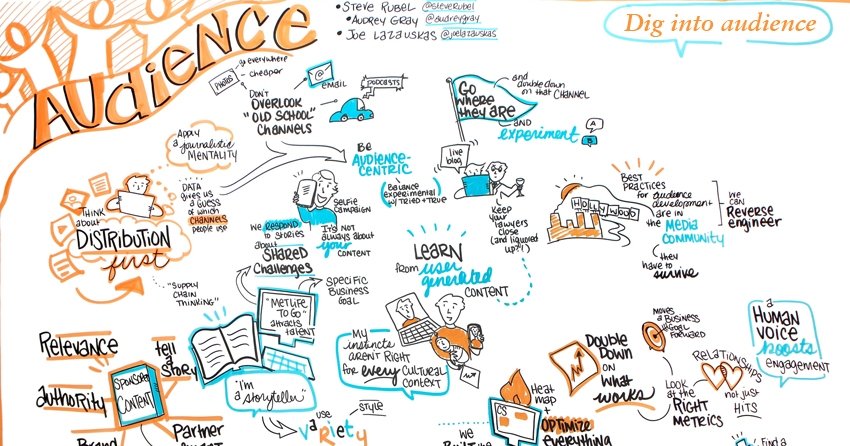 AUdiENCE
• STEVE RUBEL @steveRubel
• AUDREY GRAY @audreygray
• JOE LAZAUSKAS @joelazauskas
Dig into audience
PHOTOS
go everywhere
cheaper
@
EMAIL
DON'T
OVERLOOK
"OLD SCHOOL"
CHANNELS
PODCASTS
GO
WHERE
they ARE
and
double down
on that CHANNEL
AND
EXPERIMENT
A
B
Apply
a journalistic
MENTALITY
BE
AUDIENCE-
CENTRIC
(Balance
experimental
w/ TRIED + TRUE)
live
blog
KEEP
your
lawyers
close
(and liquored
up?!)
HOLLYWOOD
BEST
PRACTICES
for audience
development
are in
the MEDIA
COMMUNITY
WE
CAN
REVERSE
ENGINEER
they
have to
survive
DATA
gives us
a GUESS
of which
CHANNELS
people use
THINK
about
DISTRIBUTION
first
"SUPPLY
CHAIN
THINKING"
SELFIE
CAMPAIGN
IT'S NOT
always about
your
CONTENT
WE RESPOND
to STORIES
about
SHARED
Challenges
LEARN
from user
generated
CONTENT
SPECIFIC
BUSINESS
GOAL
"METLIFE
TO GO"
attracts
talent
Relevance
tell
a
STORY
authority
SPONSORED
CONTENT
Brand
Partner
"I'm
a storyteller"
USE
VaRiety
of
STYLE
My
instincts
AREN'T RIGHT
for every CULTURAL
CONTEXT
DOUBLE
DOWN
ON
WHAT
WORKS
MOVES
A BUSINESS
GOAL
FORWARD
Look
at the
RIGHT
METRICS
RELATIONSHIPS
not just
HITS
a
HUMAN
VOICE
boosts
engagement
CS
HEAT
MAP
+
OPTIMIZE
everything
WE
Find a